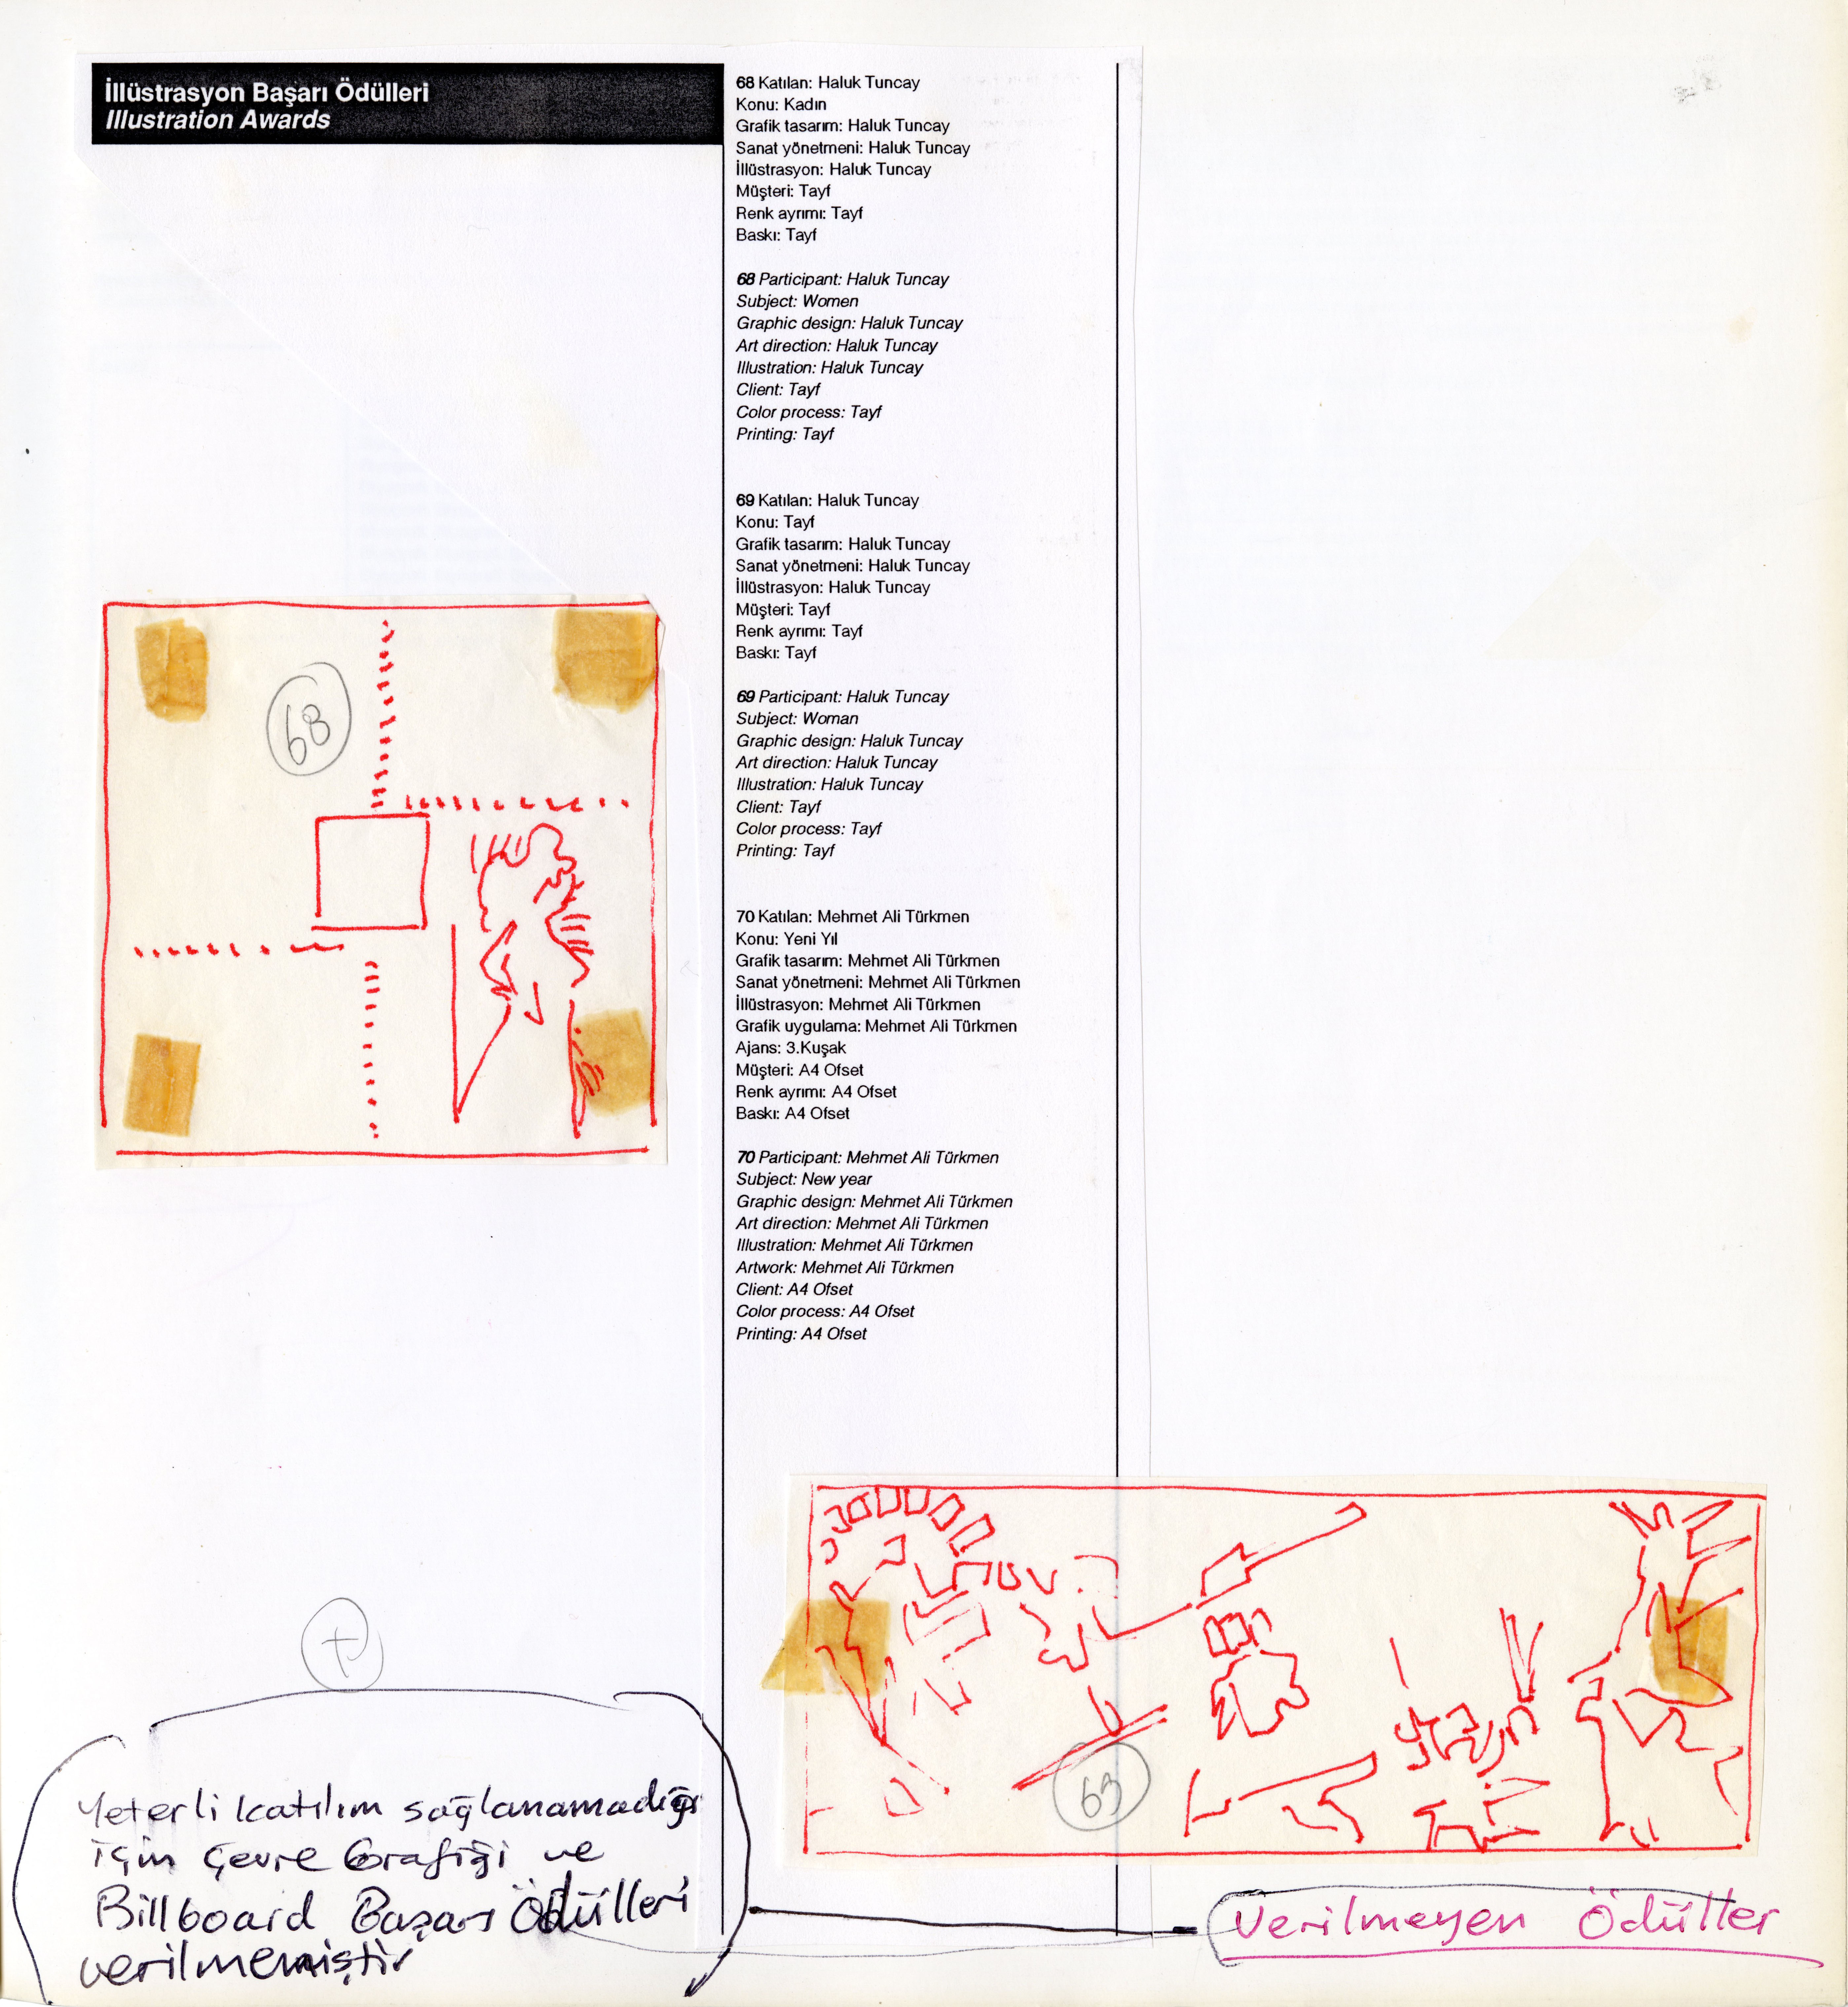 İllüstrasyon Başarı Ödülleri
Illustration Awards
68 Katılan: Haluk Tuncay
Konu: Kadın
Grafik tasarım: Haluk Tuncay
Sanat yönetmeni: Haluk Tuncay
İllüstrasyon: Haluk Tuncay
Müşteri: Tayf
Renk ayrımı: Tayf
Baskı: Tayf
68 Participant: Haluk Tuncay
Subject: Women
Graphic design: Haluk Tuncay
Art direction: Haluk Tuncay
Illustration: Haluk Tuncay
Client: Tayf
Color process: Tayf
Printing: Tayf
69 Katılan: Haluk Tuncay
Konu: Tayf
Grafik tasarım: Haluk Tuncay
Sanat yönetmeni: Haluk Tuncay
İllüstrasyon: Haluk Tuncay
Müşteri: Tayf
Renk ayrımı: Tayf
Baskı: Tayf
69 Participant: Haluk Tuncay
Subject: Woman
Graphic design: Haluk Tuncay
Art direction: Haluk Tuncay
Illustration: Haluk Tuncay
Client: Tayf
Color process: Tayf
Printing: Tayf
70 Katılan: Mehmet Ali Türkmen
Konu: Yeni Yıl
Grafik tasarım: Mehmet Ali Türkmen
Sanat yönetmeni: Mehmet Ali Türkmen
İllüstrasyon: Mehmet Ali Türkmen
Grafik uygulama: Mehmet Ali Türkmen
Ajans: 3.Kuşak
Müşteri: A4 Ofset
Renk ayrımı: A4 Ofset
Baskı: A4 Ofset
70 Participant: Mehmet Ali Türkmen
Subject: New year
Graphic design: Mehmet Ali Türkmen
Art direction: Mehmet Ali Türkmen
Illustration: Mehmet Ali Türkmen
Artwork: Mehmet Ali Türkmen
Client: A4 Ofset
Color process: A4 Ofset
Printing: A4 Ofset
68
+
Yeterli katılım sağlanamadığı
için Çevre Grafiği ve
Billboard Başarı Ödülleri
verilmemiştir
Verilmeyen Ödüller